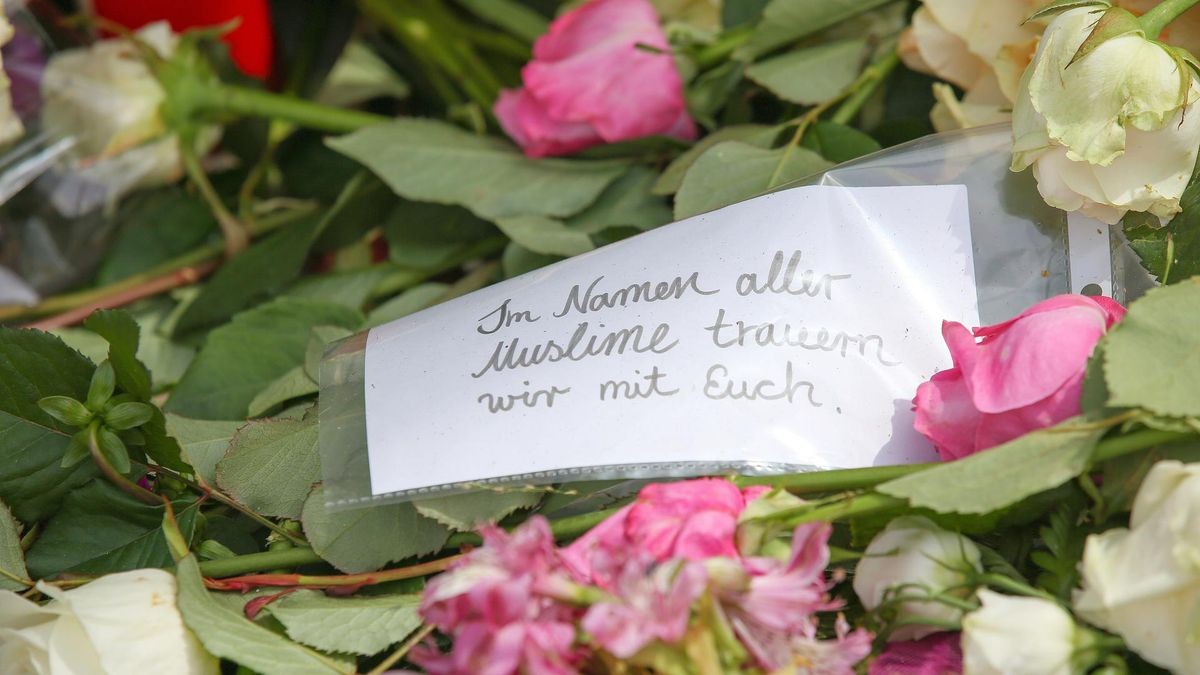 Im Namen aller
Muslime trauern
wir mit Euch.